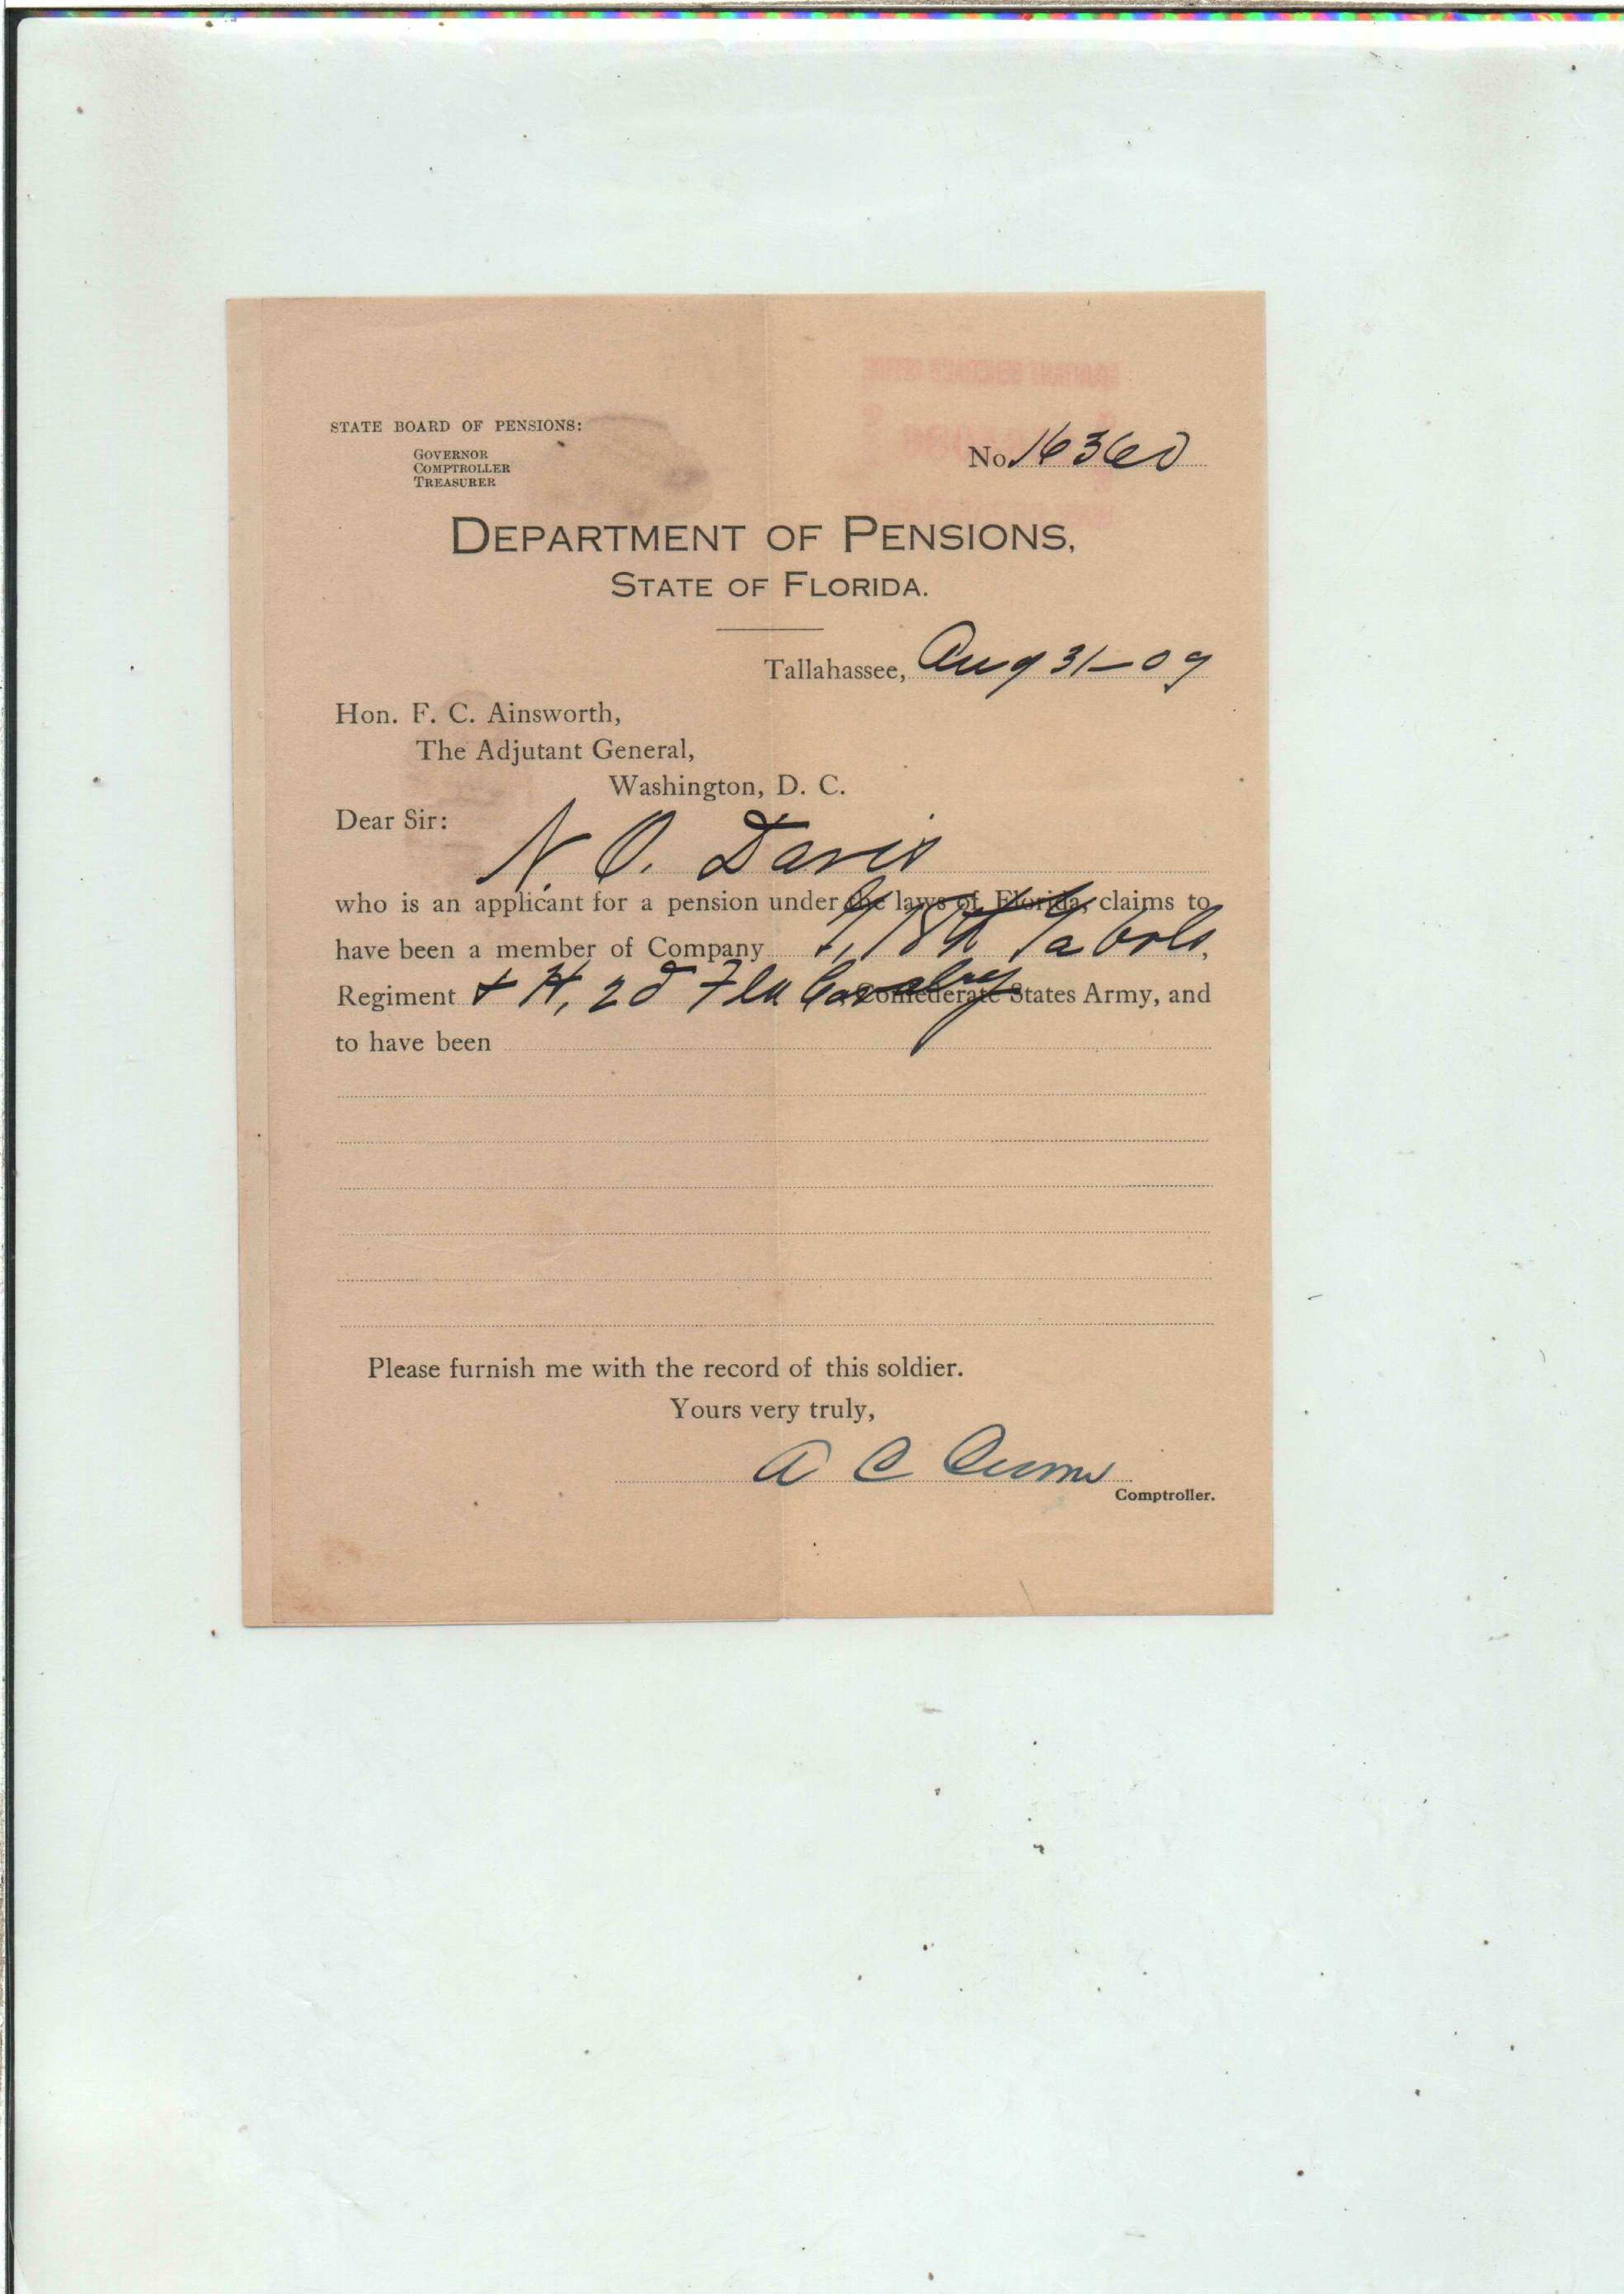 STATE BOARD OF PENSIONS:
GOVERNOR
COMPTROLLER
TREASURER
No. 16360
DEPARTMENT OF PENSIONS,
STATE OF FLORIDA.
Tallahassee, Aug 31-09
Hon. F. C. Ainsworth,
The Adjutant General,
Washington, D. C.
Dear Sir:
N. O. Davis
who is an applicant for a pension under the laws of Florida, claims to
have been a member of Company
Regiment + H, 2d Fla Cavalry Confederate States Army, and
to have been
Please furnish me with the record of this soldier.
Yours very truly,
A C Croom
Comptroller.